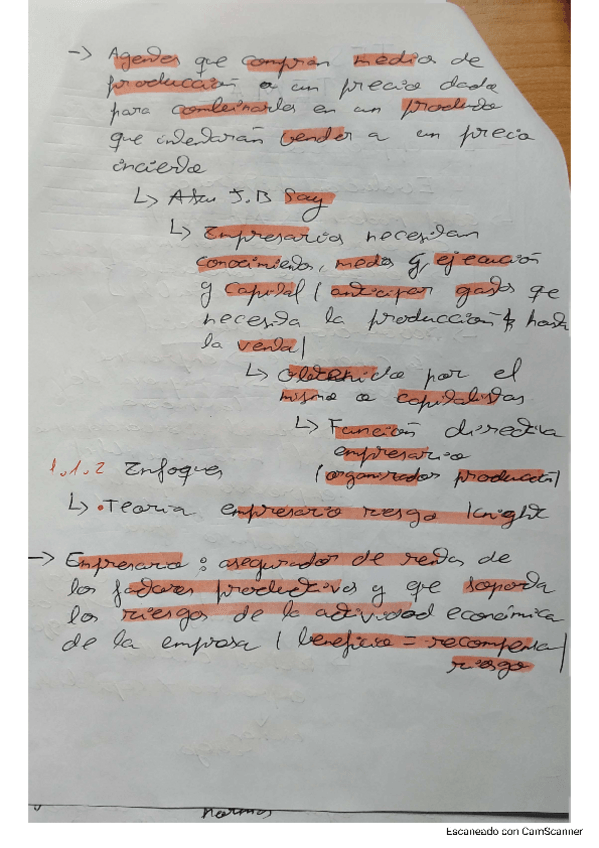 → Agentes que compran medios de
producción a un precio dado
para combinarlos en un producto
que intentarán vender a un precio
incierto
↳ J.B Say
↳ Empresarios necesitan
conocimientos, medos y ejecución
y capital / anticipar gastos que
necesita la producción hasta
la venta /
↳ Obtenido por el
mismo o capitalistas
↳ Función directiva
empresario
/ organizador producción /
1.1.2 Enfoques
↳ • Teoría empresario riesgo Knight
→ Empresario : asegurador de rentas de
los factores productivos y que soporta
los riesgos de la actividad económica
de la empresa / beneficio = recompensa /
riesgo
normos
Escaneado con CamScanner